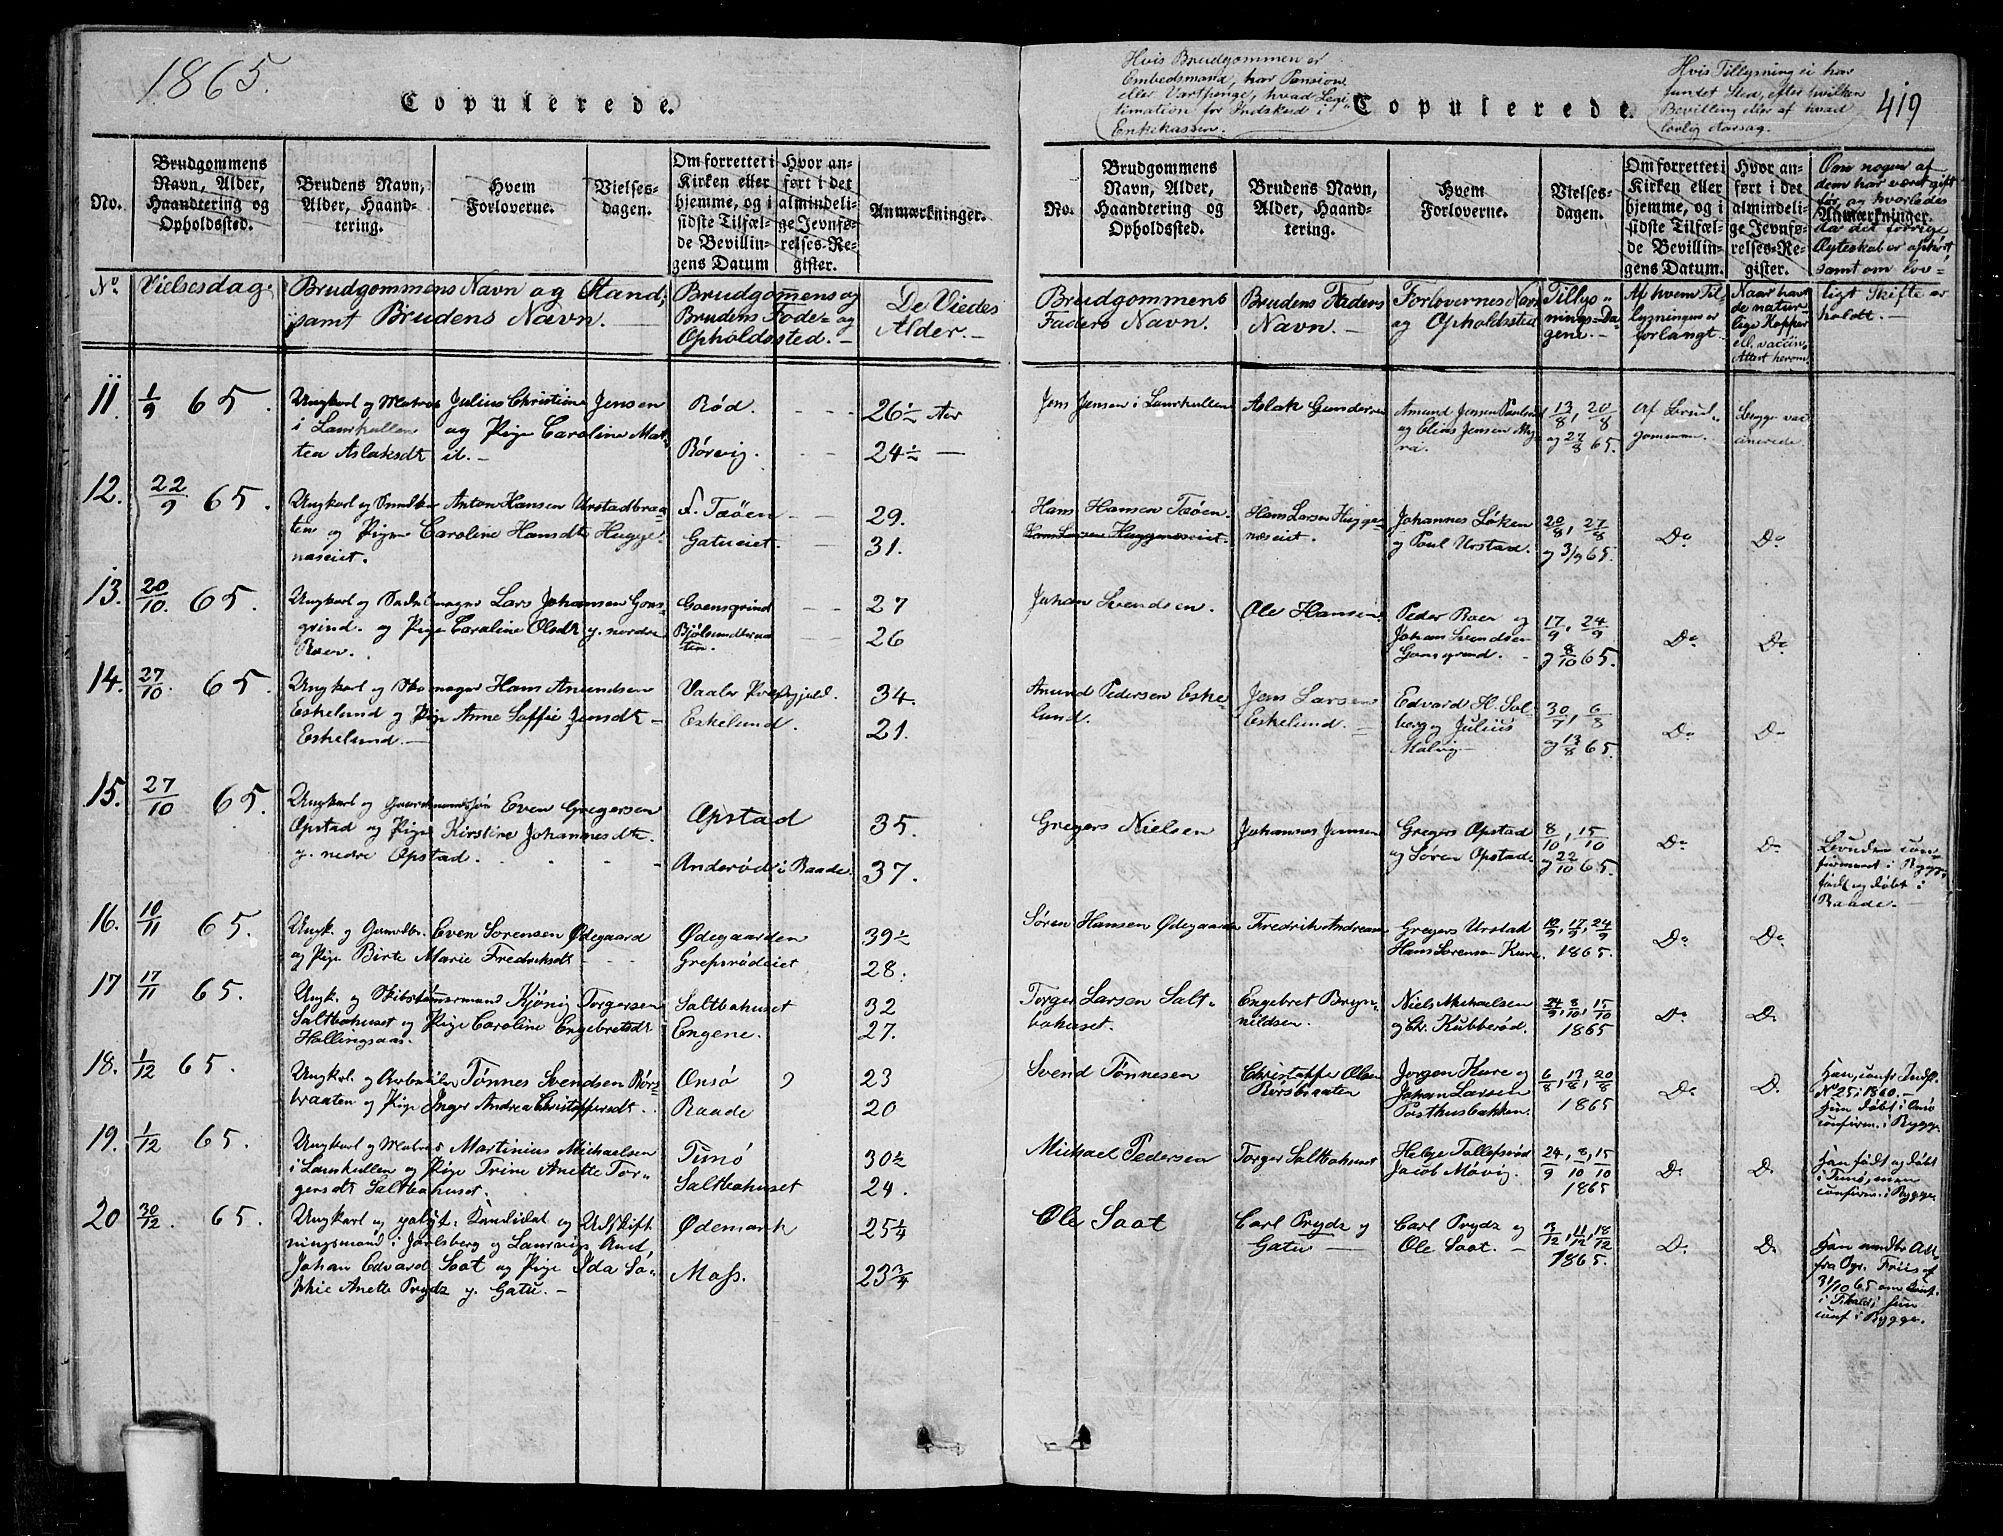 1865.
Copulerede.
No.
Brudgommens Navn, Alder, Haandtering og Opholdssted.
Brudens Navn, Alder, Haandtering.
Hvem Forloverne.
Vielsesdagen.
Om forrettet i Kirken eller hjemme, og i sidste Tilfælde Bevillingens Datum
Hvor anført i det almindelige Jevnførelses-Register.
Anmærkninger.
No.
Vielsesdag
Brudgommens Navn og Stand,
samt Brudens Navn.
Brudgommens og
Brudens Føde- og
Opholdssted.
De Viedes
Alder.
11. 1/9 65.
Ungkarl og Matros Julius Christian Jensen
i Larkullen og Pige Caroline Mat-
tea Aslaksdt
Rød.
Rørvig.
26½ Aar
24½
12. 22/9 65.
Ungkarl og Anton Hansen Urstadbraa-
ten og Pige Caroline Hansdt Hugge-
naseiet.
f. Taøen
Gatueiet.
29.
31.
13. 20/10. 65.
Ungkarl og Lars Johansen Gons-
grind. og Pige Caroline Olsdt g. nordre
Roer.
Goensgrind
27
26
14. 27/10. 65.
Ungkarl og Skomager Hans Amundsen
Eskelund og Pige Anne Soffie Jensdt
Eskelund.
Vaaler Præstegjeld.
Eskelund.
34.
21.
15. 27/10 65.
Ungkarl og Gaardmandssøn Even Gregersen
Opstad og Pige Kirstine Johannesdt
g. nedre Opstad.
Opstad
Anderød i Raade.
35.
37.
16. 10/11 65.
Ungk. og Gaardbr. Even Sorensen Ødegaard
og Pige Birte Marie Fredriksdt
Ødegaarden
Grepsrødeiet
39½
28.
17 17/11 65.
Ungk. og Skibstømmermand Kjønig Torgersen
Saltbohuset og Pige Caroline Engebretsdt
Hallingsaas.
Saltbohuset
Engene.
32
27.
18. 1/12 65.
Ungkarl og Arbeider Tønnes Svendsen Rørs-
braaten og Pige Inger Andrea Christoffersdt.
Onsø
Raade
23
20
19. 1/12 65.
Ungkarl og Matros Martinius Michaelsen
i Larkullen og Pige Trine Anette Tor-
gersdt Saltbohuset.
Tunø
Saltbohuset
30½
24.
20 30/12. 65.
Ungkarl og polyt. Kandidat og Udskift-
ningsmand i Jarlsberg og Laurvigs Amt,
Johan Edvard Saat og Pige Ida So-
phie Anette Prydz g. Gatu.
Ødemark
Moss.
25¼
23¾
Hvis Brudgommen er
Embedsmand, har Pension
eller Vartpenge, hvad Legi-
timation for Indskud i
Enkekassen.
Copulerede.
Hvis Tillysning ei har
fundet Sted, efter hvilken
Bevilling eller af hvad
lovlig Aarsag.
419
No.
Brudgommens Navn, Alder, Haandtering og Opholdssted.
Brudens Navn, Alder, Haandtering.
Hvem Forloverne.
Vielsesdagen.
Om forrettet i Kirken eller hjemme, og i sidste Tilfælde Bevillingens Datum.
Hvor anført i det almindelige Jevnførelses-Register.
Anmærkninger.
Om nogen af
dem har været gift
før, og hvorledes
da det forrige
Ægteskab er ophørt,
samt om lov-
ligt Skifte er
holdt.
Brudgommens
Faders Navn.
Brudens Faders
Navn.
Forlovernes Navn
og Opholdssted
Tillys-
nings-Da-
gene.
Af hvem Til-
lysningen er
forlangt.
Naar havt
de natur-
lige Kopper
ell. vaccin.
Attest herom.
Jens Jensen i Larkullen
Aslak Gundersen
Amund Jensen
og Elias Jensen
13/8, 20/8
og 27/8 65.
Af Brud-
gommen
begge vac-
cinerede.
Hans Hansen Taøen.
Hans Larsen Huggenæseiet
Hans Larsen Hugge-
næseiet.
Johannes Løken
og Poul Urstad.
20/8, 27/8
og 3/9 65.
Do
Do
Johan Svendsen.
Ole Hansen
Peder Roer og
Johan Svendsen
Gonsgrind.
17/9, 24/9
og 8/10 65.
Do
Do
Amund Pedersen Eske-
lund.
Jens Larsen
Eskelund.
Edvard H. Sol-
berg og Julius
Malvig
30/7, 6/8
og 13/8 65.
Do
Do
Gregers Nielsen
Johannes Jensen
Gregers Opstad
og Søren Opstad
8/10, 15/10
og 22/10 65.
Do
Do
Bruden con-
firmeret i Rygge,
født og døbt i
Raade.
Søren Hansen Ødegaarden
Fredrik Andreasen
Gregers Urstad
Hans Sorensen Kure.
10/9, 17/9, 24/9
1865.
Do
Do
Torger Larsen Salt-
bohuset.
Engebret Bryn-
nildsen.
Niels Michaelsen
og Ch. Kubberød.
24/9, 8/10, 15/10
1865
Do
Do
Svend Tønnesen
Christoffer Olsen
Rørsbraaten
Jørgen Kure og
Johan Larsen
Posthusbakken.
6/8, 13/8, 20/8
1865
Do
Do
Han, confr. Indfl.
No 25 i 1860.
Hun døbt i Onsø
confirm. i Rygge.
Michael Pedersen
Torger Saltbohuset
Helge Tollefsrød
Jacob Møvig.
24/9, 8/10, 15/10
1865
Do
Do
Han født og døbt
i Tunø, men
confirm. i Rygge
Ole Saat
Carl Prydz g
Gatu
Carl Prydz og
Ole Saat.
3/12, 11/12, 18/12
1865.
Do
Do
Han Att.
fra Pgr. Friis af
31/10 65 om Conf.
i hun
conf i Rygge.